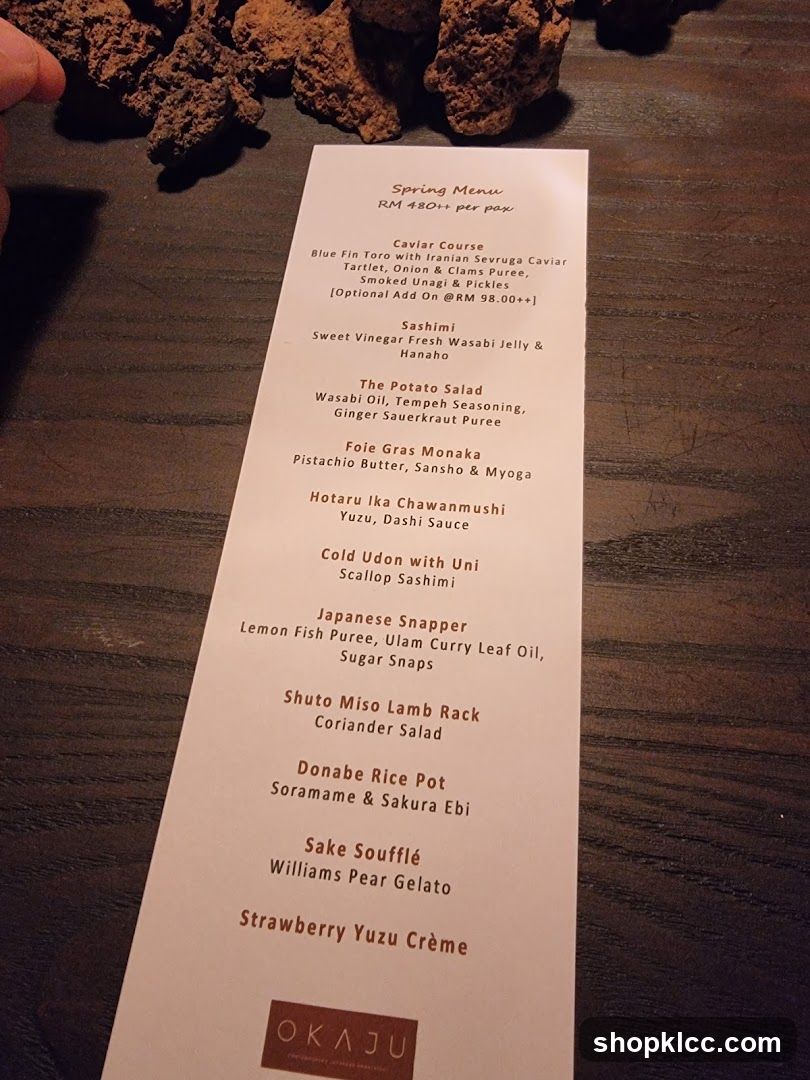 Spring Menu
RM 480++ per pax
Caviar Course
Blue Fin Toro with Iranian Sevruga Caviar
Tartlet, Onion & Clams Puree,
Smoked Unagi & Pickles
[Optional Add On @RM 98.00++]
Sashimi
Sweet Vinegar Fresh Wasabi Jelly &
Hanaho
The Potato Salad
Wasabi Oil, Tempeh Seasoning,
Ginger Sauerkraut Puree
Foie Gras Monaka
Pistachio Butter, Sansho & Myoga
Hotaru Ika Chawanmushi
Yuzu, Dashi Sauce
Cold Udon with Uni
Scallop Sashimi
Japanese Snapper
Lemon Fish Puree, Ulam Curry Leaf Oil,
Sugar Snaps
Shuto Miso Lamb Rack
Coriander Salad
Donabe Rice Pot
Soramame & Sakura Ebi
Sake Soufflé
Williams Pear Gelato
Strawberry Yuzu Crème
OKAJU
shopklcc.com